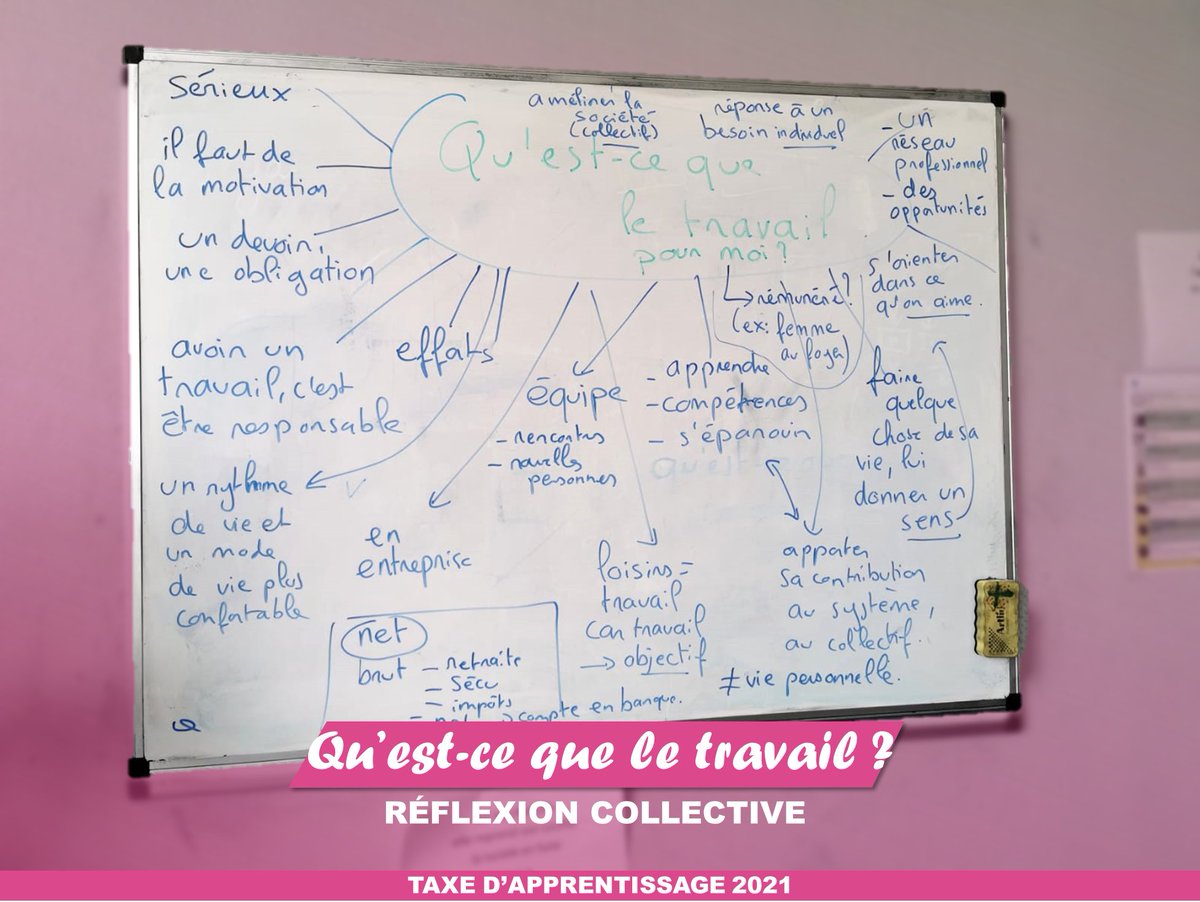 Sérieux
il faut de
la motivation
un devoir,
une obligation
avoir un
travail, c'est
être responsable
un rythme
de vie et
un mode
de vie plus
confortable
améliorer la
société
(collectif)
réponse à un
besoin individuel
- un
réseau
professionnel
- des
opportunités
Qu'est-ce que
le travail
pour moi ?
s'orienter
dans ce
qu'on aime.
→ rémunéré ?
(ex: femme
au foyer)
efforts
équipe
- rencontres
- nouvelles
personnes
- apprendre
- compétences
- s'épanouir
faire
quelque
chose de sa
vie, lui
donner un
sens
en
entreprise
loisirs =
travail
car travail
→ objectif
apporter
sa contribution
au système,
au collectif.
≠ vie personnelle.
net
brut - retraite
- Sécu
- impôts
= net → compte en banque.
Artline
Qu'est-ce que le travail ?
RÉFLEXION COLLECTIVE
TAXE D'APPRENTISSAGE 2021